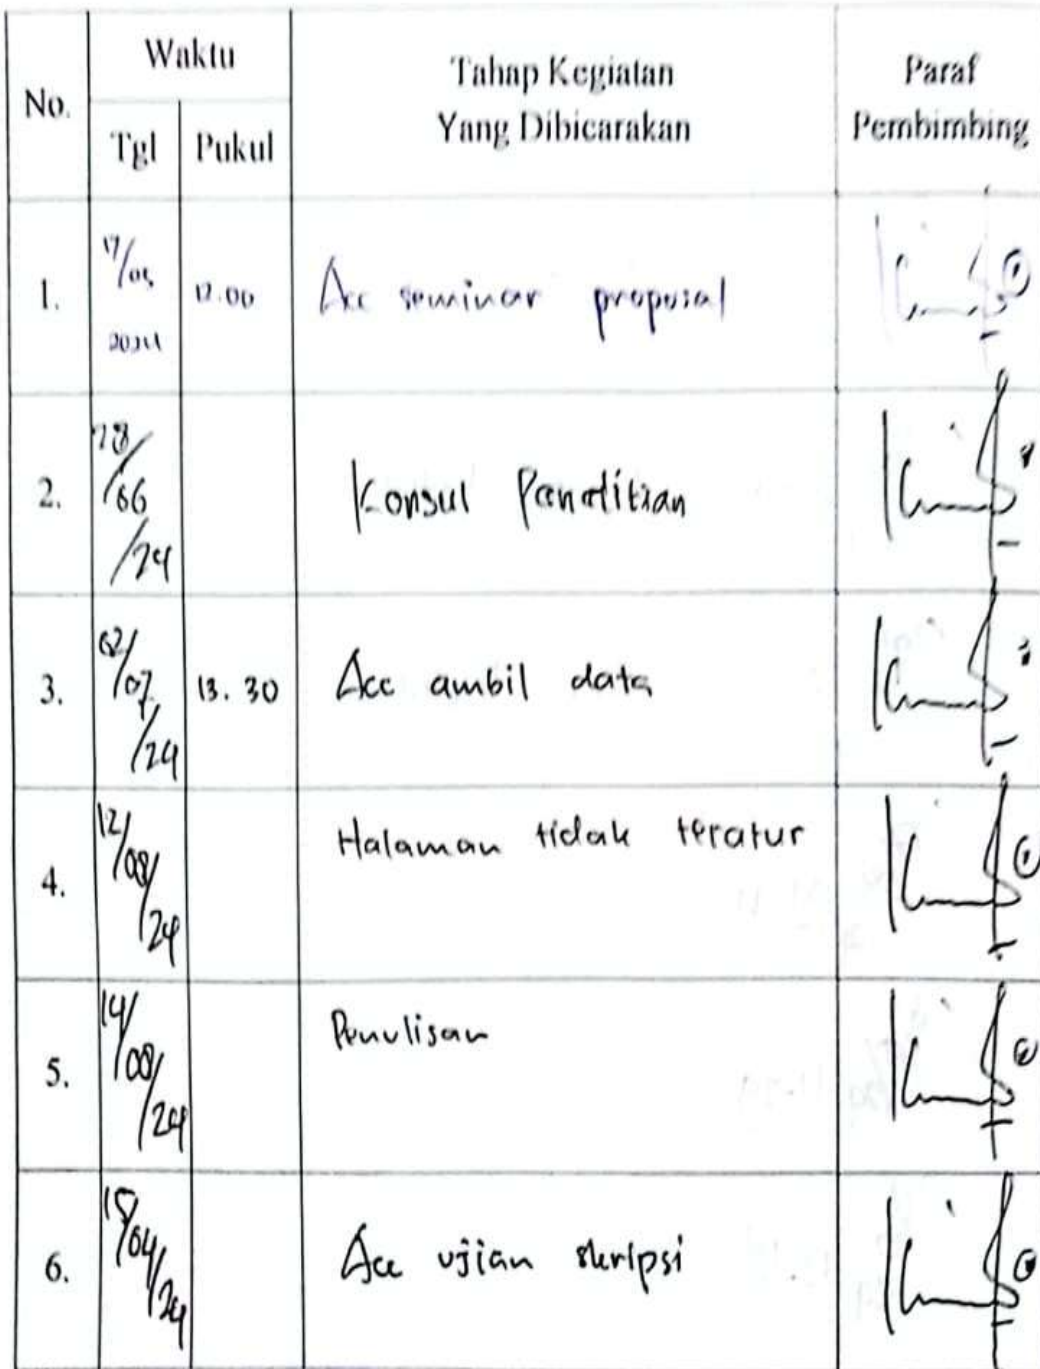 No. Waktu Tahap Kegiatan Yang Dibicarakan Paraf Pembimbing
Tgl Pukul
1. 17/05 2024 12.00 Acc seminar proposal
2. 28/06/24 Konsul Penelitian
3. 02/07/24 13.30 Acc ambil data
4. 12/08/24 Halaman tidak teratur
5. 14/08/24 Penulisan
6. Acc ujian skripsi